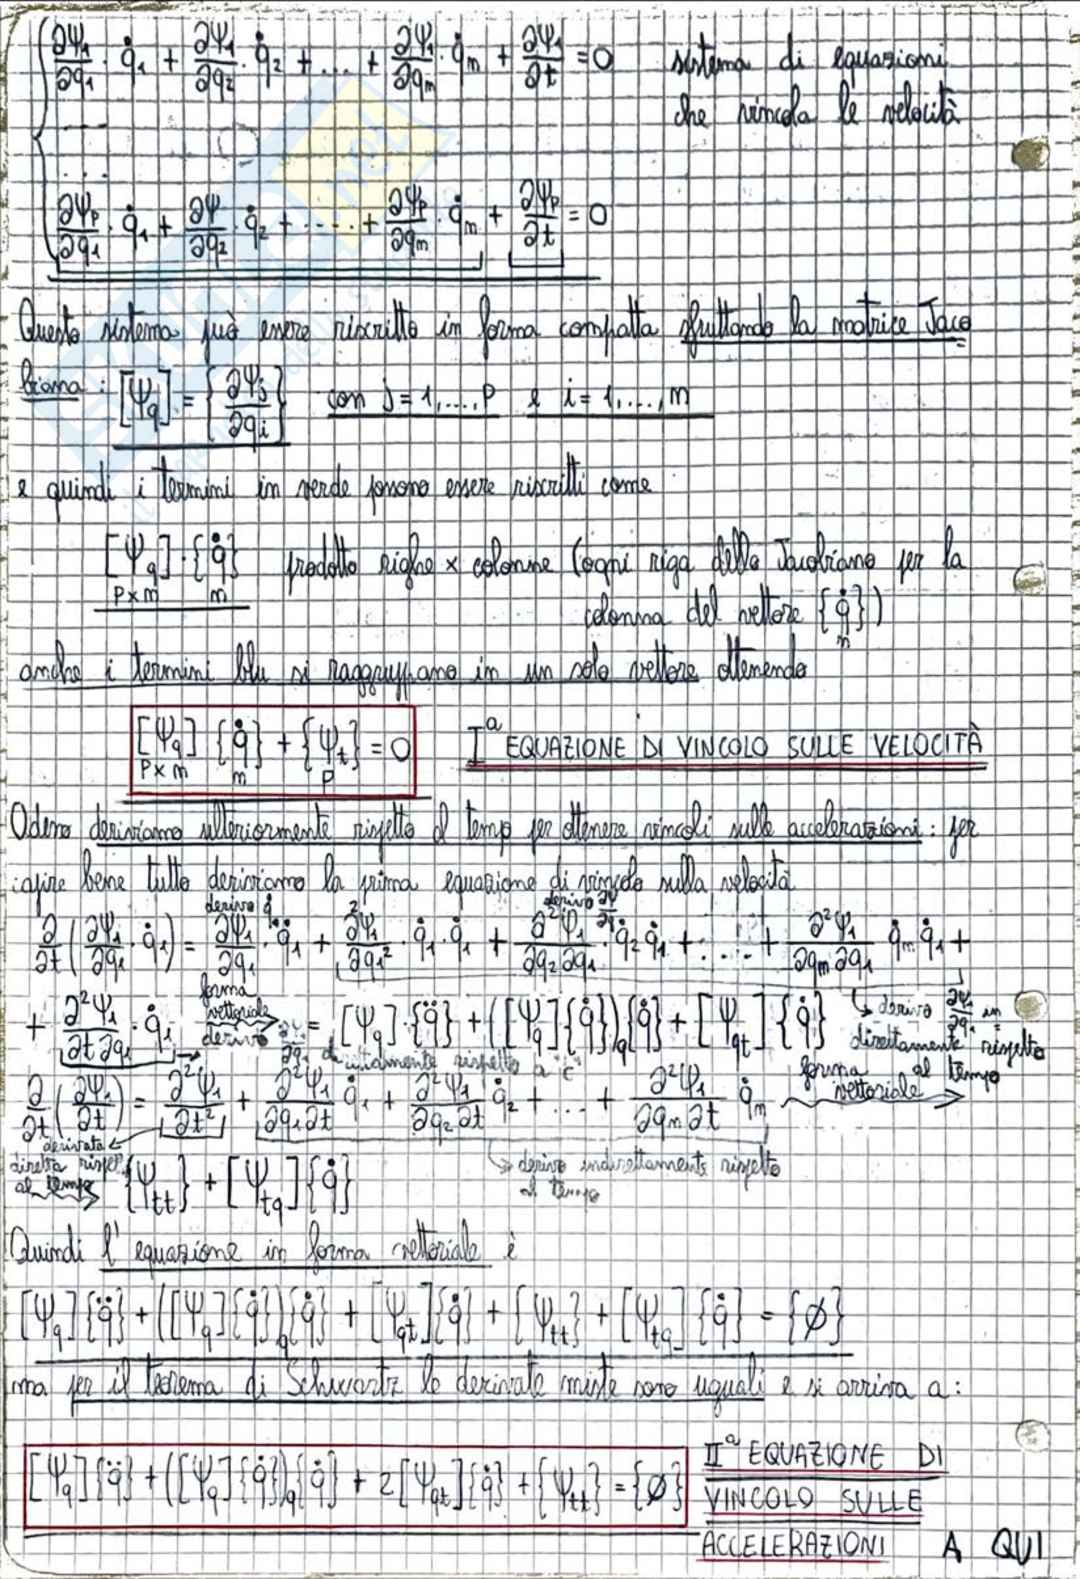 ∂Ψ₁/∂q₁ · q̇₁ + ∂Ψ₁/∂q₂ · q̇₂ + ... + ∂Ψ₁/∂qₘ · q̇ₘ + ∂Ψ₁/∂t = 0 sistema di equazioni
che vincola le velocità
...
...
∂Ψₚ/∂q₁ · q̇₁ + ∂Ψ/∂q₂ · q̇₂ + ..... + ∂Ψₚ/∂qₘ · q̇ₘ + ∂Ψₚ/∂t = 0
Questo sistema può essere riscritto in forma compatta sfruttando la matrice Jaco
biana : [Ψq] = {∂Ψj/∂qi} con j = 1,....,P e i = 1,....,m
e quindi i termini in verde possono essere riscritti come
[Ψq] · {q̇} prodotto righe × colonne (ogni riga della Jacobiana per la
P×m m colonna del vettore {q̇})
m
anche i termini blu si raggruppano in un solo vettore ottenendo
[Ψq] {q̇} + {Ψt} = 0 Iª EQUAZIONE DI VINCOLO SULLE VELOCITÀ
P×m m P
Adesso deriviamo ulteriormente rispetto al tempo per ottenere vincoli sulle accelerazioni : per
capire bene tutto deriviamo la prima equazione di vincolo sulla velocità
derivo q̇ derivo ∂Ψ/∂q
∂/∂t (∂Ψ₁/∂q₁ · q̇₁) = ∂Ψ₁/∂q₁ · q̈₁ + ∂²Ψ₁/∂q₁² · q̇₁ · q̇₁ + ∂²Ψ₁/∂q₂∂q₁ · q̇₂ q̇₁ + .... + ∂²Ψ₁/∂qₘ∂q₁ q̇ₘ q̇₁ +
+ ∂²Ψ₁/∂t∂q₁ · q̇₁ forma vettoriale = [Ψq]·{q̈} + ([Ψq]{q̇})q{q̇} + [Ψqt]{q̇} derivo ∂Ψ₁/∂q₁ in
direttamente rispetto al tempo
derivo ∂Ψ/∂q₁ direttamente rispetto a "t"
∂/∂t (∂Ψ₁/∂t) = ∂²Ψ₁/∂t² + ∂²Ψ₁/∂q₁∂t q̇₁ + ∂²Ψ₁/∂q₂∂t q̇₂ + ... + ∂²Ψ₁/∂qₘ∂t q̇ₘ forma vettoriale
derivata diretta rispetto al tempo {Ψtt} + [Ψtq]{q̇} derivo indirettamente rispetto al tempo
Quindi l' equazione in forma vettoriale è
[Ψq]{q̈} + ([Ψq]{q̇})q{q̇} + [Ψqt]{q̇} + {Ψtt} + [Ψtq]{q̇} = {∅}
ma per il teorema di Schwartz le derivate miste sono uguali e si arriva a :
[Ψq]{q̈} + ([Ψq]{q̇})q{q̇} + 2[Ψqt]{q̇} + {Ψtt} = {∅} IIª EQUAZIONE DI
VINCOLO SULLE
ACCELERAZIONI A QUI